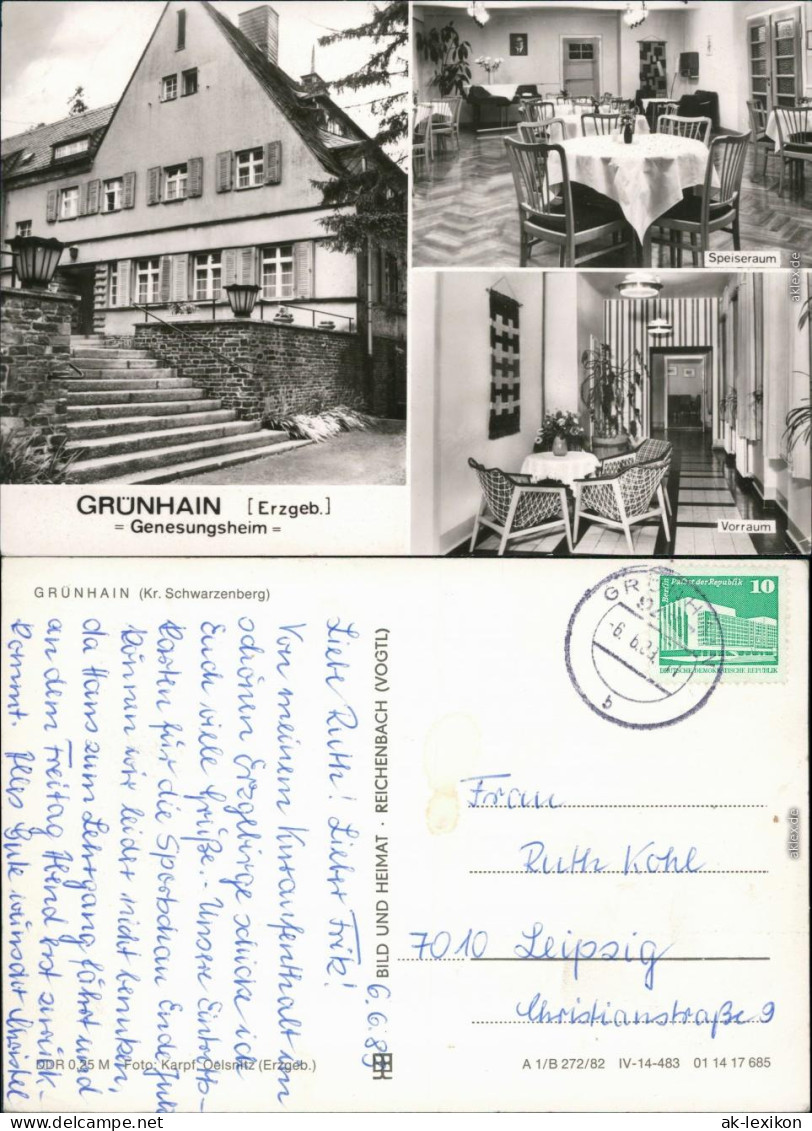 Speiseraum
GRÜNHAIN [Erzgeb.]
= Genesungsheim =
Vorraum
GRÜNHAIN (Kr. Schwarzenberg)
6.6.89
Liebe Ruth! Lieber Frik!
Von meinem Kuraufenthalt im
schönen Erzgebirge schicke ich
Euch viele Grüße. – Unsere Eintritts-
karten für die Sportschau Ende Juli
können wir leider nicht benutzen,
da Hans zum Lehrgang fährt und
an dem Freitag Abend erst zurück-
kommt. Alles Gute wünscht Christel
BILD UND HEIMAT · REICHENBACH (VOGTL)
Berlin Palast der Republik 10
DEUTSCHE DEMOKRATISCHE REPUBLIK
-6.6.89
b
Frau
Ruth Kohl
7010 Leipzig
Christianstraße 9
DDR 0,25 M Foto: Karpf, Oelsnitz (Erzgeb.)
A 1/B 272/82 IV-14-483 01 14 17 685
aklex.de
aklex.de
www.ak-lexikon.de
ak-lexikon